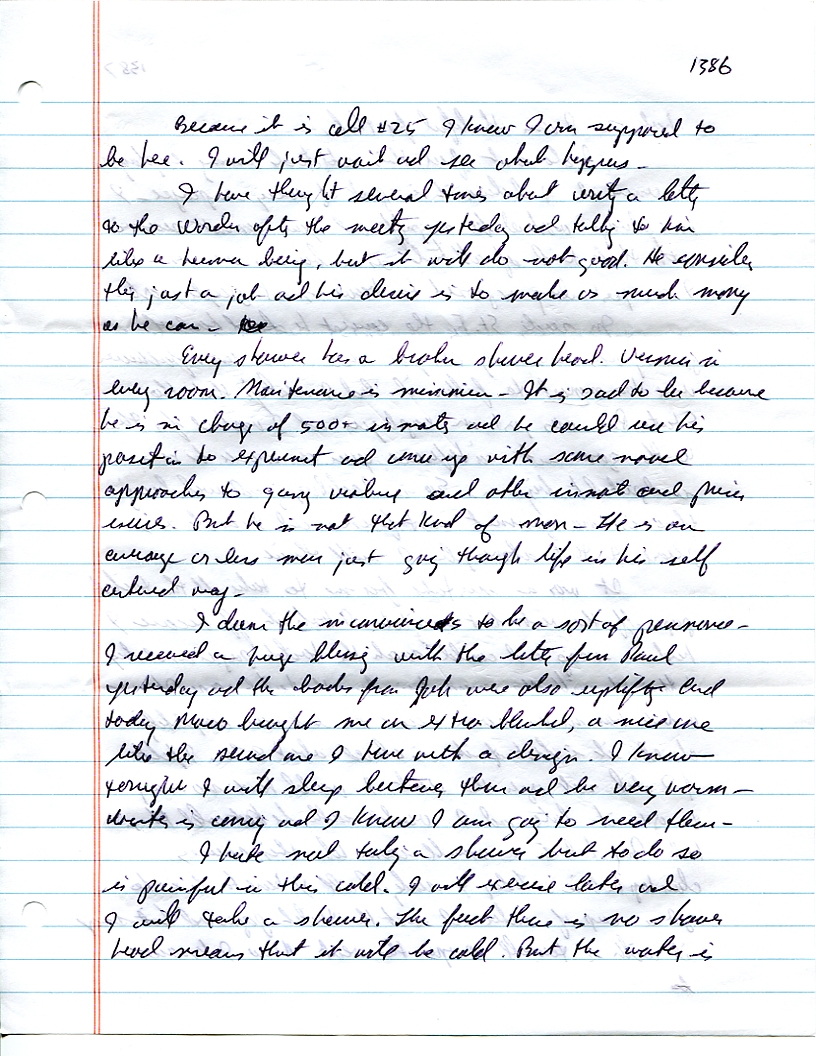 1386
Because it is cell #25 I know I am supposed to
be here. I will just wait and see what happens -
I have thought several times about writing a letter
to the Warden after the meeting yesterday and talking to him
like a human being, but it will do not good. He considers
this just a job and his desire is to make as much money
as he can -
Every shower has a broken shower head. Vermin in
every room. Maintenance is minimum - It is sad to be because
he is in charge of 500+ inmates and he could use his
position to experiment and come up with some novel
approaches to gang violence and other inmate and prison
issues. But he is not that kind of man - He is an
average or less man just going through life in his self
centered way -
I deem the inconveniences to be a sort of pennance -
I received a huge blessing with the letter from Paul
yesterday and the books from were also uplifting and
today brought me an extra blanket, a nice one
like the second one I have with a design. I know
tonight I will sleep between them and be very warm -
winter is coming and I know I am going to need them -
I hate not taking a shower but to do so
is painful in this cold. I will exercise later and
I will take a shower. The fact there is no shower
head means that it will be cold. But the water is